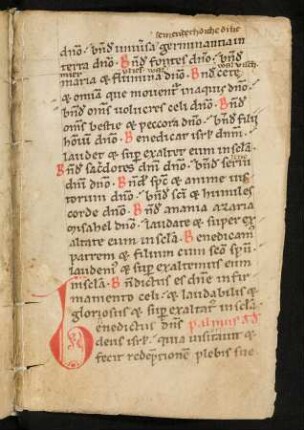 dno · Bnd uniusa germinantia in
terra dno · Bnd fontes dno · bnd
maria & flumina dno · Bnd cete
& omia que mouent' inaquis dno ·
bnd oms uolucres celi dno · Bnd
oms bestie & peccora dno · bnd filii
hoim dno · Benedicat isrl dnm
laudet & sup exaltet eum inscla ·
Bnd sacdotes dni dno · bnd serui
dni dno · Bnd spc & anime ius
torum dno · bnd sci & humiles
corde dno · Bnd anania azaria
misahel dno · laudate & super ex
altate eum inscla · Benedicam
patrem & filium cum sco spu
laudem & sup exaltemus eum
inscla · Bndictus es dne infir
mamento celi · & laudabilis &
gloriosus & sup exaltat' inscla
Benedictus dns psalmus
deus isrl · quia uisitauit &
fecit redeptionem plebis sue